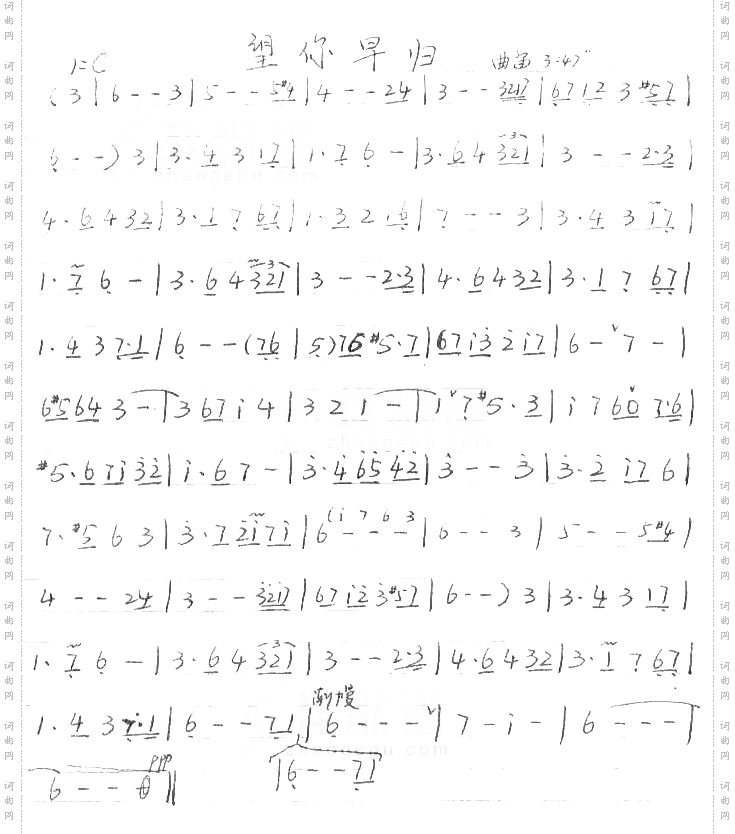 望你早归
1=C 曲笛 3:47"
(3 | 6 - - 3 | 5 - - 5#4 | 4 - - 24 | 3 - - 3217 | 6712 3 #57 |
6 - -) 3 | 3·4 3 17 | 1·7 6 - | 3·6 4 321 | 3 - - 2·3 |
4·6 4 32 | 3·1 7 67 | 1·3 2 16 | 7 - - 3 | 3·4 3 17 |
1·7 6 - | 3·6 4 321 | 3 - - 2·3 | 4·6 4 32 | 3·1 7 67 |
1·4 3 7·1 | 6 - - (76 | 5) 76 #5·7 | 6713 2 17 | 6 - ˅ 7 - |
6#564 3 - | 3 67 i 4 | 3 2 1 - | 1 ˅ 7 #5·3 | i 7 60 ˅ 7·6 |
#5·6 71 32 | i·6 7 - | 3·4 65 42 | 3 - - 3 | 3·2 17 6 |
7·#5 6 3 | 3·7 2171 | 6 (i 7 6 3 - - - | 6 - - 3 | 5 - - 5#4 |
4 - - 24 | 3 - - 3217 | 6712 3#57 | 6 - -) 3 | 3·4 3 17 |
1·7 6 - | 3·6 4 321 | 3 - - 2·3 | 4·6 4 32 | 3·1 7 67 |
渐慢
1·4 3 7·1 | 6 - - 71 | 6 - - - ˅ | 7 - i - | 6 - - - |
ppp
6 - - 0 ‖ | 6 - - 71
zhaogepu.com
词曲网